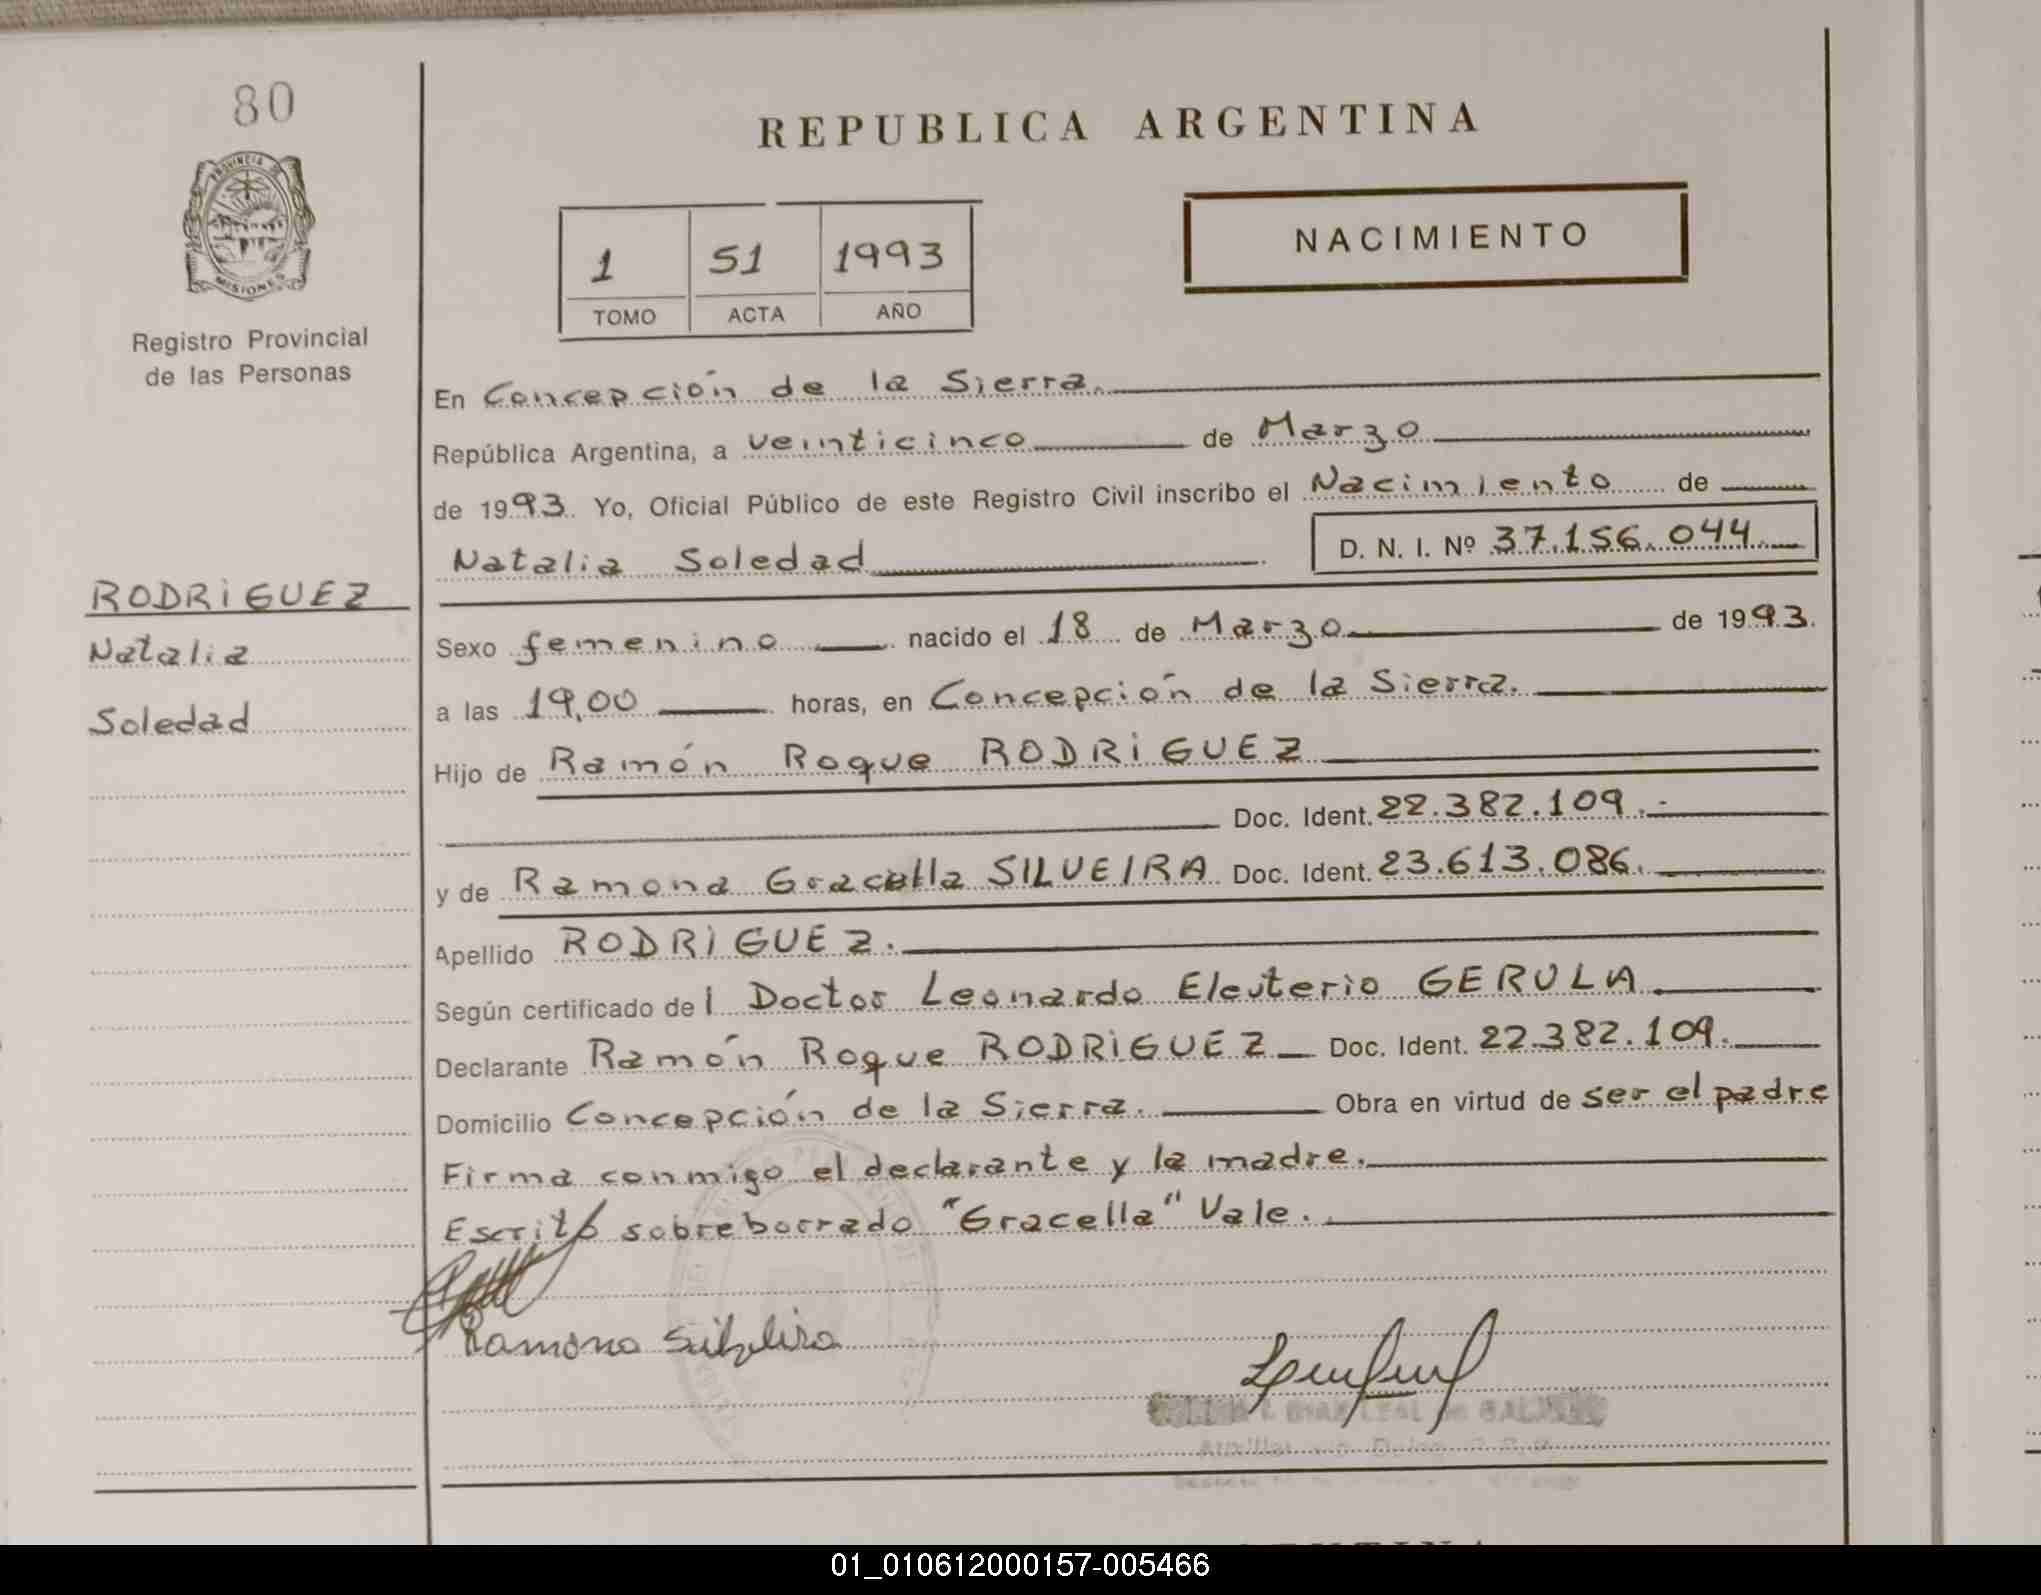 80
PROVINCIA DE
MISIONES
Registro Provincial
de las Personas
RODRIGUEZ
Natalia
Soledad
REPUBLICA ARGENTINA
1 51 1993
TOMO ACTA AÑO
NACIMIENTO
En Concepción de la Sierra.
República Argentina, a veinticinco de Marzo
de 1993. Yo, Oficial Público de este Registro Civil inscribo el Nacimiento de
Natalia Soledad D. N. I. Nº 37.156.044
Sexo femenino nacido el 18 de Marzo de 1993.
a las 19,00 horas, en Concepción de la Sierra.
Hijo de Ramón Roque RODRIGUEZ
Doc. Ident. 22.382.109.-
y de Ramona Gracella SILVEIRA Doc. Ident. 23.613.086.
Apellido RODRIGUEZ.
Según certificado del Doctor Leonardo Eleuterio GERULA
Declarante Ramón Roque RODRIGUEZ Doc. Ident. 22.382.109.
Domicilio Concepción de la Sierra. Obra en virtud de ser el padre
Firma conmigo el declarante y la madre.
Escrito sobreborrado "Gracella" Vale.
Ramona Silveira
01_010612000157-005466